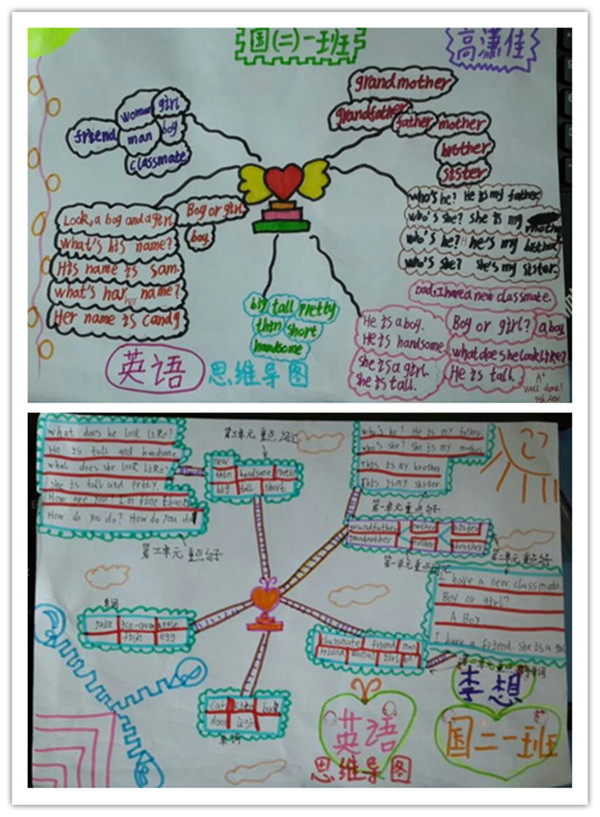 国(二)一班
高潇佳
grandmother
grandfather
father
mother
brother
sister
woman
girl
friend
man
boy
classmate
Look, a boy and a girl
What's his name?
His name is Sam.
What's har her name?
Her name is candy
Boy or girl
boy
who's he? He is my father.
who's she? She is my
who's he? he's my brother
who's she? she's my sister.
big tall pretty
thin short
handsome
Dad, I have a new classmate.
He is a boy.
He is handsome.
She is a girl.
She is tall.
Boy or girl?
a boy
what doe she Look Like?
He is tall.
A+
well done!
英语
思维导图
what does he look like?
He is tall and handsome
what does she look like?
she is tall and pretty.
How are you? I'm fine
How do you do? How do you do
new
thin handsome
big tall short
who's he? He is my father.
who's she? She is my mother
This is my brother
This is my sister
第一单元重点句子
grandfather
grandmother
sister
brother
I have a new classmate
Boy or girl?
A Boy
I have a friend. she is a
classmate friend man
李想
国二一班
英语
思维导图